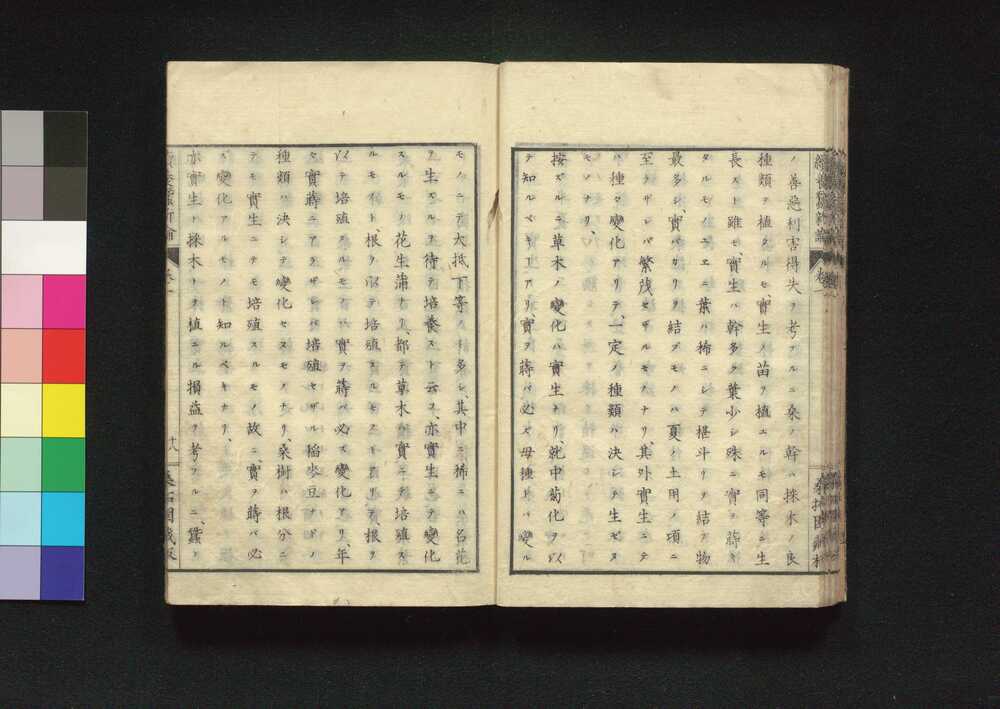 ノ善惡利害得失ヲ考フルニ桑ノ幹ハ採木ノ良
種類ヲ植タルモ實生ノ苗ヲ植エルモ同等ニ生
長スト雖モ、實生ハ幹多ク葉少シ殊ニ實ヲ蒔キ
タルモノユエニ葉ハ柿ニシテ椹斗リヲ結ブ物
最多シ實バカリヲ結ブモノハ夏ノ土用ノ項ニ
至ラザレバ繁茂セザルモノナリ、其外實生ニテ
ハ種々變化アリテ、一定ノ種類ハ決シテ生ゼヌ
モノナリ、
按ズルニ草木ノ變化ハ實生ナリ、就中菊化ヲ以
テ知ルベキ丁アリ、實ヲ蒔バ必ズ母種トハ變ル
モノニテ大抵下等ノモノ多シ、其中ニ稀ニハ名花
ヲ生ズルヲ待テ培養スト云フ、亦實生ニテ變化
スルモノ花生蒲ナリ、都テ草木ハ實ニテ培殖ス
ルモノト、根ヲ以テ培殖スルモノト有リテ、根ヲ
以テ培殖スルモノハ實ヲ蒔バ必ズ變化アリ、年
々實蒔ニアラザレバ培殖セザル稲麥豆ナドノ
種類ハ決シテ變化セヌモノナリ、桑樹ハ根分ニ
テモ實生ニテモ培殖スルモノ故ニ、實ヲ蒔バ必
ズ變化アルモノト知ルベキナリ、
亦實生ト採木トヲ植ニル損益ヲ考フルニ、蠶ヲ
卷一
十八